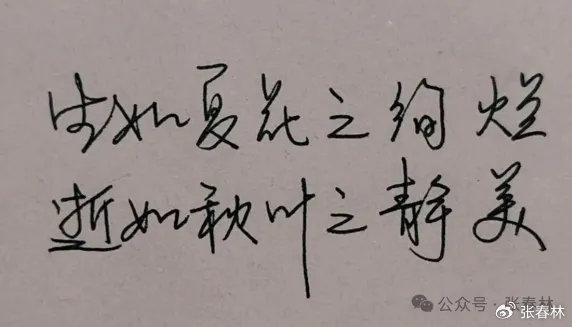 生如夏花之绚烂
逝如秋叶之静美
公众号·张春林
张春林